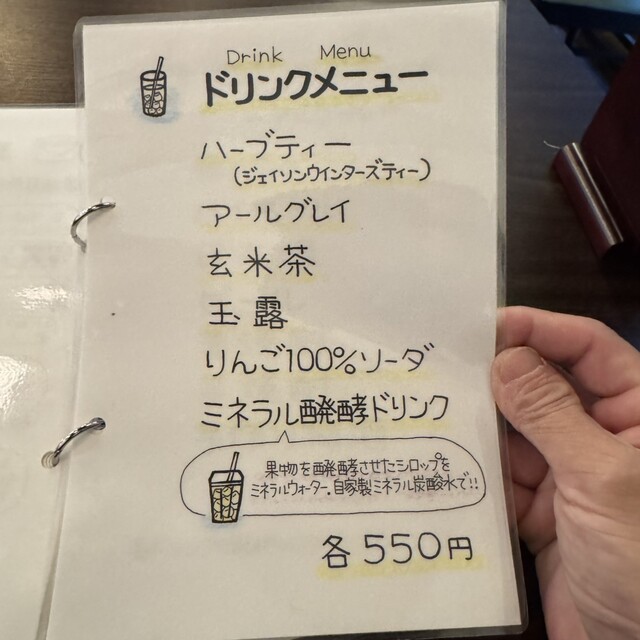 Drink Menu
ドリンクメニュー
ハーブティー
(ジェイソンウインターズティー)
アールグレイ
玄米茶
玉露
りんご100%ソーダ
ミネラル醗酵ドリンク
果物を醗酵させたシロップを
ミネラルウォーター、自家製ミネラル炭酸水で!!
各550円